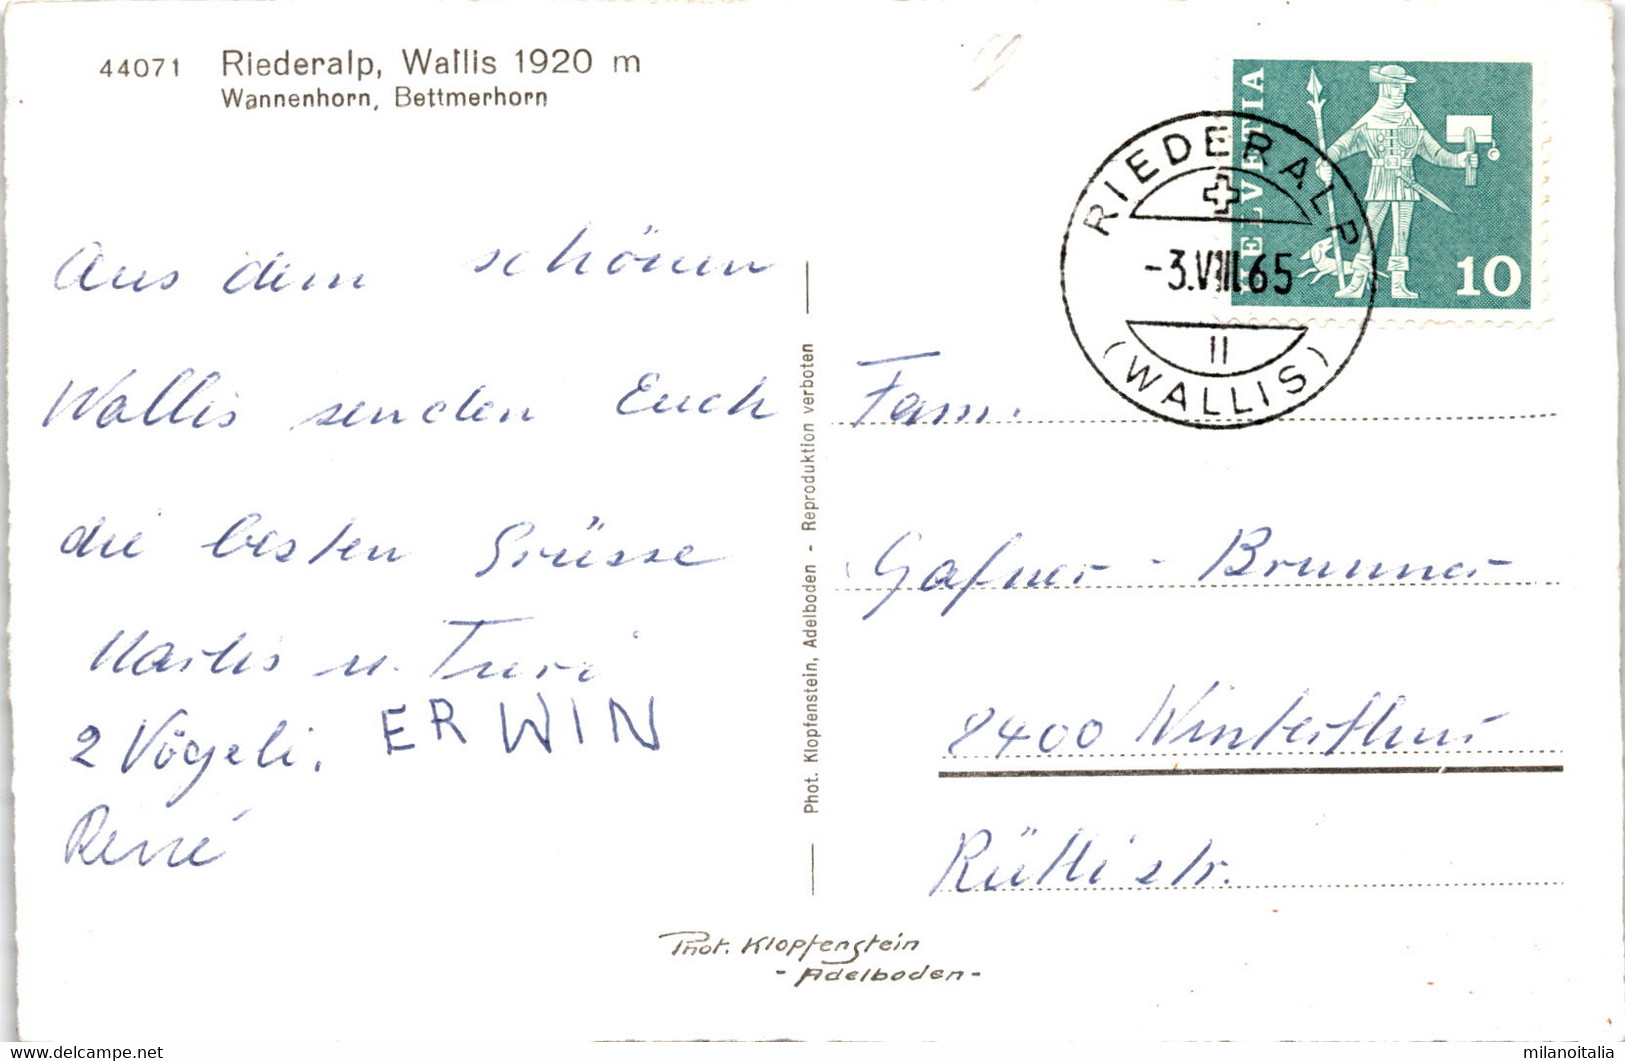 44071 Riederalp, Wallis 1920 m
Wannenhorn, Bettmerhorn
Aus dem schönen
Wallis senden Euch
die besten Grüsse
Marlis u. Turi
2 Vögeli, ERWIN
René
Phot. Klopfenstein, Adelboden - Reproduktion verboten
HELVETIA
10
RIEDERALP
-3.VIII.65
II
(WALLIS)
Fam.
Gafner - Brunner
8400 Winterthur
Rüttistr.
Phot. Klopfenstein
- Adelboden -
www.delcampe.net
milanoitalia